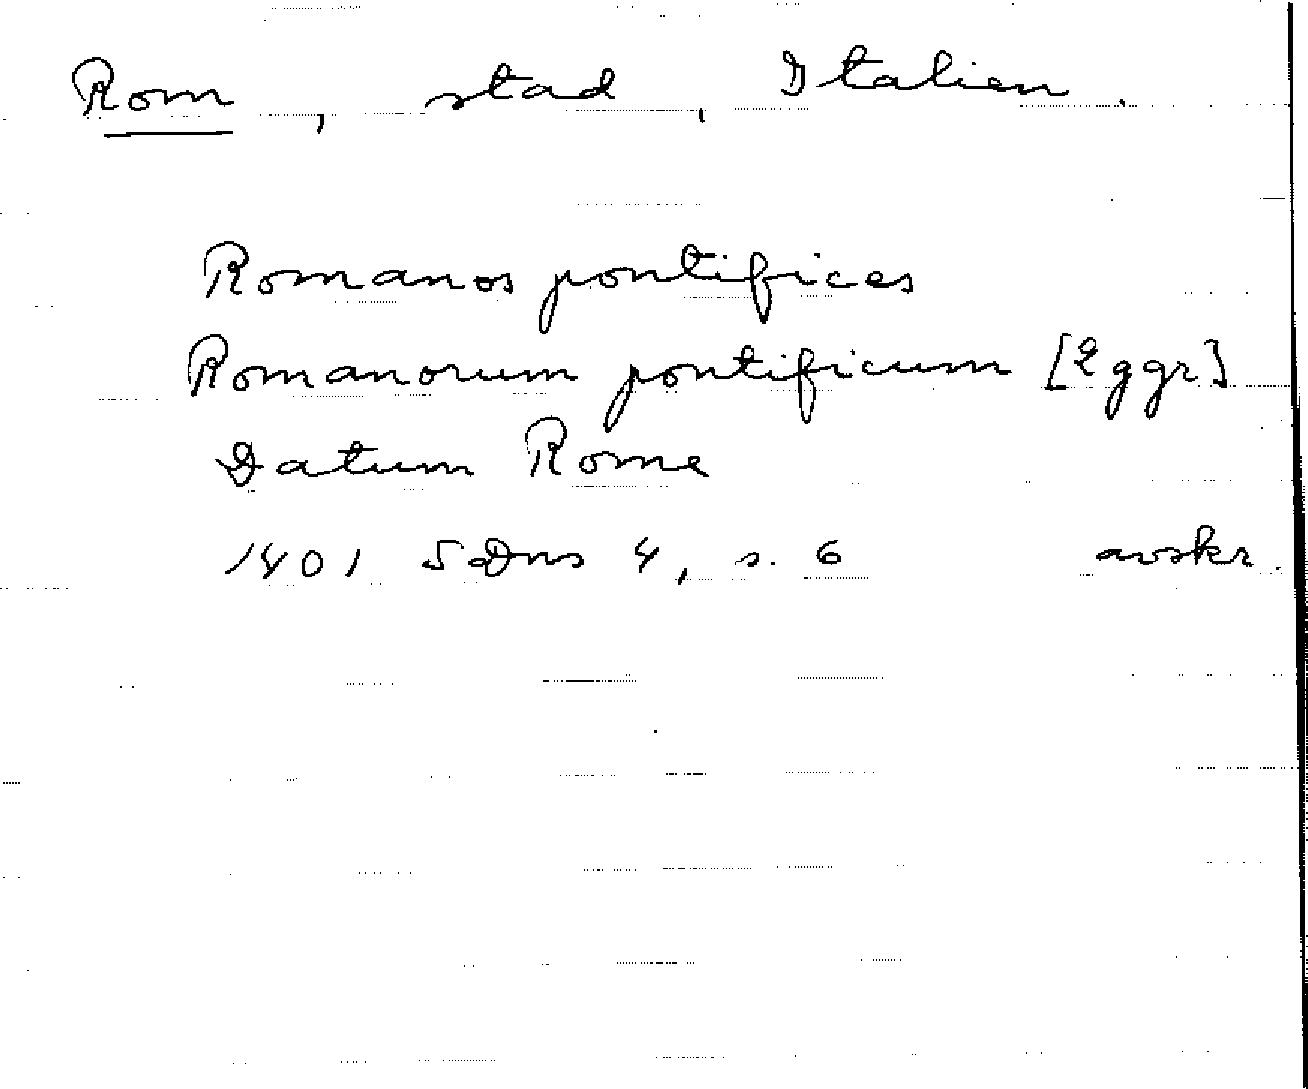 Rom, stad, Italien.
Romanos pontifices
Romanorum pontificum [2 ggr]
Datum Rome
1401 SDns 4, s. 6 avskr.